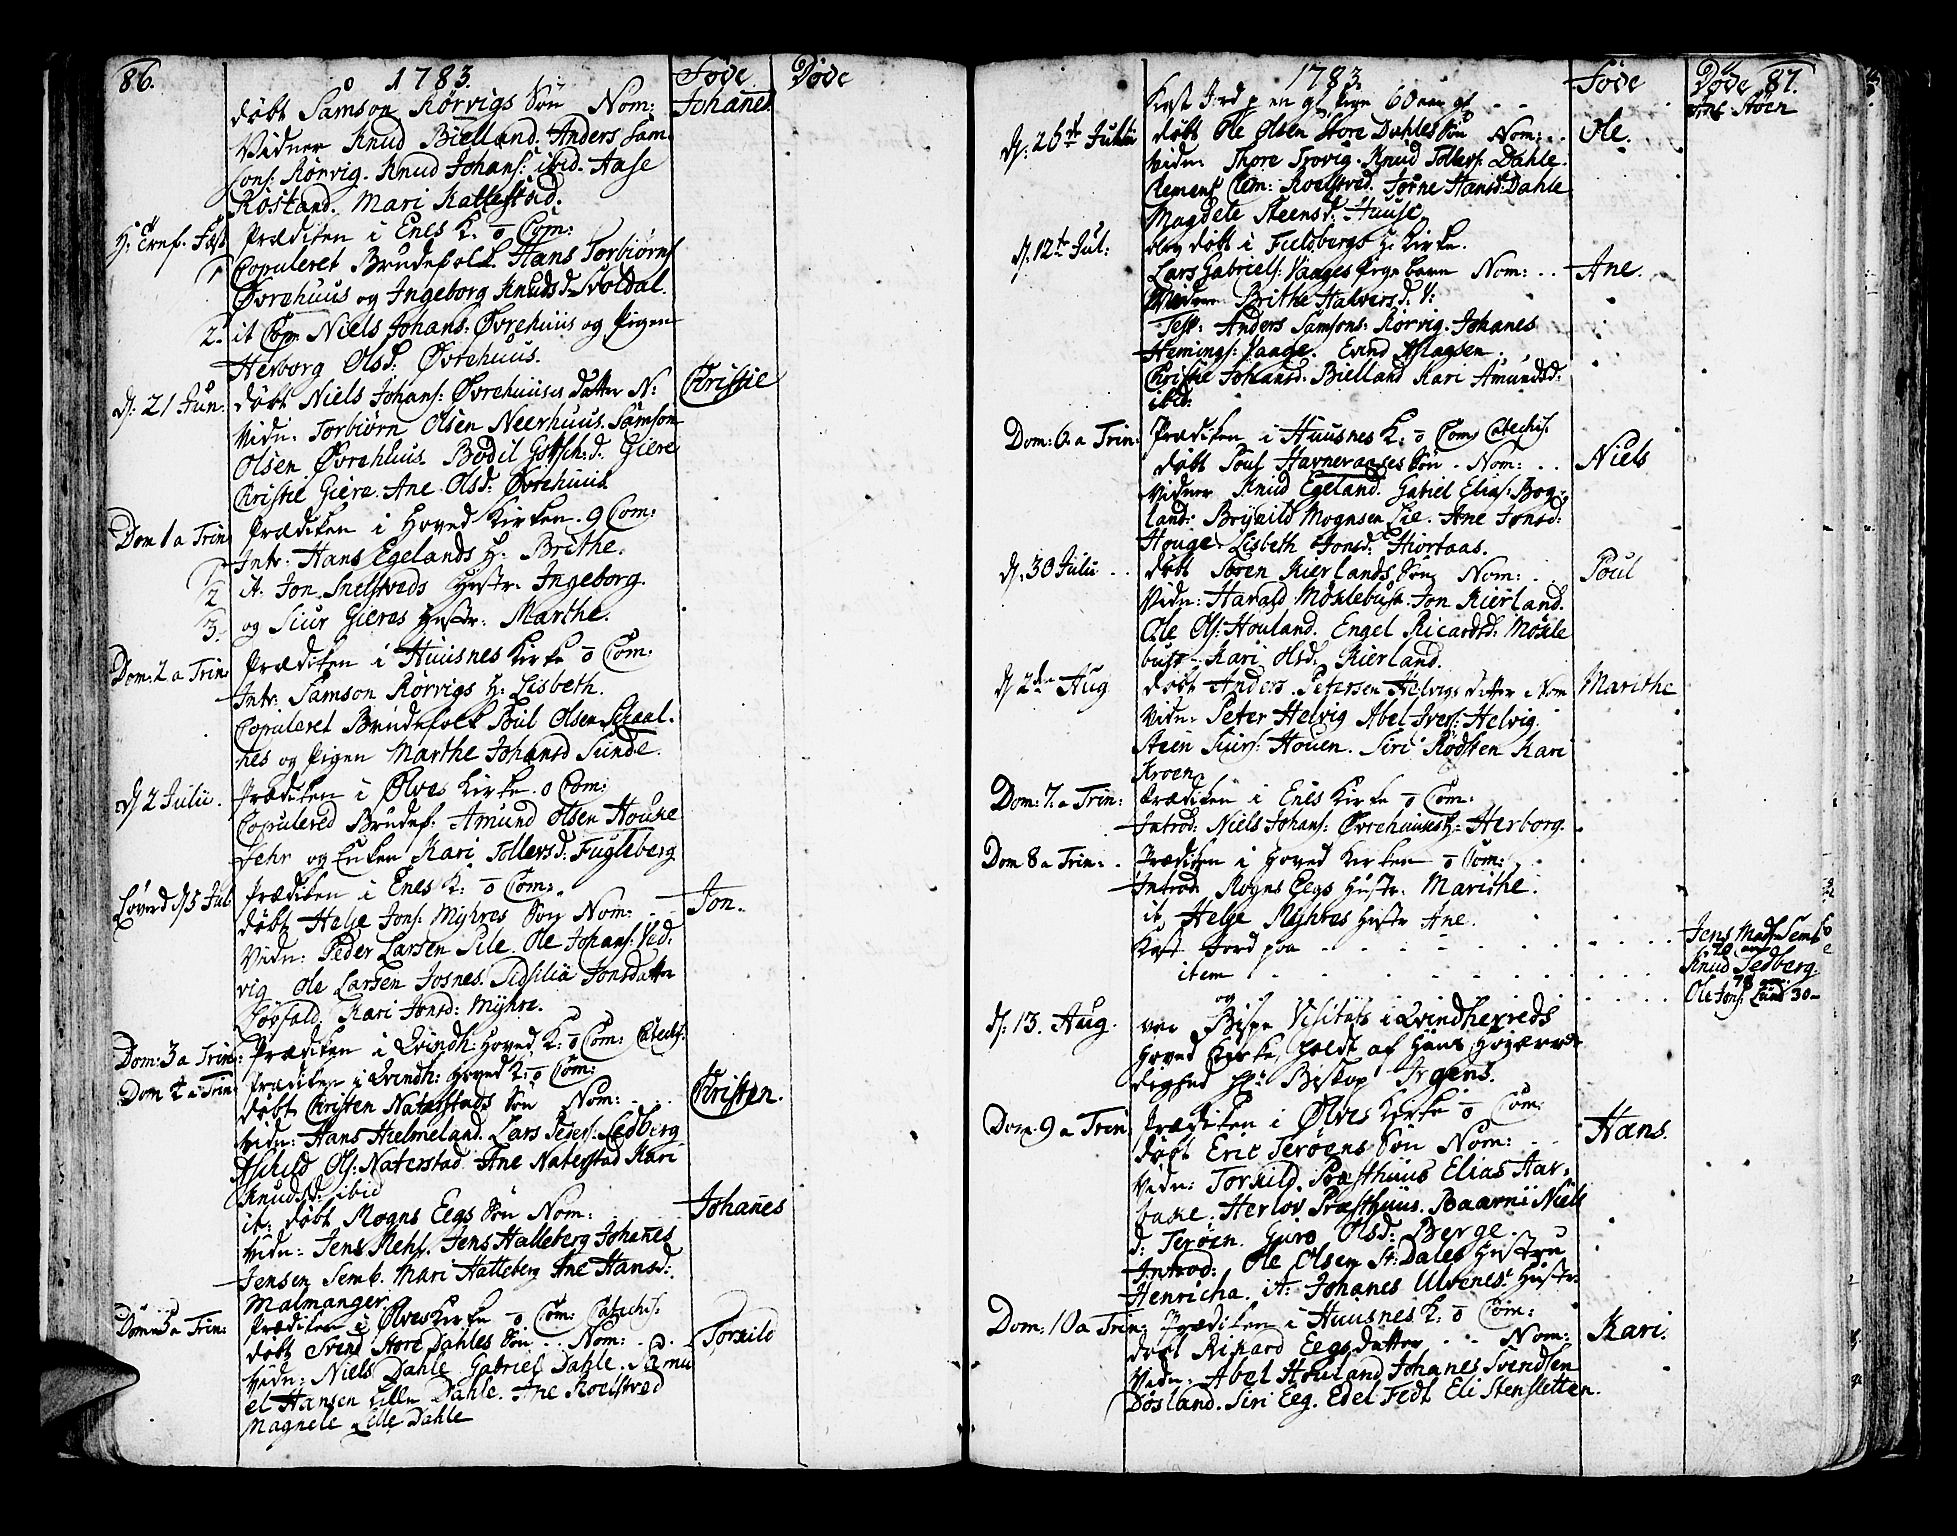 86.
1783.
Föde
Döde
döbt Samson Rörvigs Sön Nom:
Johañes
Vidner Knud Bielland. Anders Sam
sons. Rörvig. Knud Johans: ibid. Aase
Röstand. Mari Kattestad.
Prædiken i Enes K: o Com:
Copuleret Brudefolk Hans Torbiörns
Övrehuus og Ingeborg Knudsd. Svoldal.
2. it Cop: Niels Johans: Övrehuus og Pigen
Herborg Olsd: Övrehuus.
d: 21 Jun.
döbt Niels Johans: Övrehuuses datter N:
Christie
Vidn: Torbiörn Olsen Neerhuus. Samson
Olsen Övrehuus. Bodil Gotsch:d. Giere
Christie Giere. Ane Olsd: Övrehuus
Dom 1 a Trin
Prædiken i Hoved Kirken. 9 Com:
1
Intr: Hans Egelands H: Brithe.
2
it. Jon Snelstveds Hustr: Ingeborg.
3.
og Siur Gieres Hustr: Marthe.
Dom: 2 a Trin
Prædiken i Huusnes Kirke o Com:
Intr: Samson Rörvigs H: Lisbeth.
Copuleret Brudefolk Poul Olsen Schaal-
nes og Pigen Marthe Johansd Sunde.
d 2 Julii.
Prædiken i Ölves Kirke. o Com:
Copulered Brudef: Amund Olsen Houke
Fehr og Enken Kari Tollersd: Fugleberg
Löverd d 5 Jul
Prædiken i Enes K: o Com:
döbt Helje Jons: Myhres Sön Nom:
Jon.
Vidn: Peder Larsen Pile. Ole Johans: Ved-
vig Ole Larsen Josnes. Sidsilia Jonsdatter
Lövfald. Kari Jonsd: Myhre.
Dom: 3 a Trin:
Prædiken i Qvindh: Hoved K: o Com: Catech:
Dom 4 a Trin:
Prædiken i Qvindh: Hoved K: o Com:
döbt Christen Naterstads Sön Nom:
Christen.
Vidn: Hans Hielmeland. Lars Peders: Sedberg
Aschild Ols: Naterstad. Ane Naterstad Kari
Knudsd: ibid
it: döbt Mogns Eegs Sön Nom:
Johañes
Vidn: Jens Mehl. Jens Halleberg Johañes
Jensen Semb. Mari Hatteberg Ane Hansd:
Malmanger.
Dom: 5 a Trin:
Prædiken i Ölves Kirke o Com: Catechis:
döbt Svend Store Dahles Sön Nom:
Torkild
Vidn: Niels Dahle. Gabriel Dahle. Samu
el Hansen Lille Dahle. Ane Roelstved
Magnele Lille Dahle
1783
Föde
Döde 87.
Kast Jord p en gl Pige 60 aar gl
Stöen
d: 26de Julii
döbt Ole Olsen Store Dahles Sön Nom:
Ole.
Vidn: Thore Trovig. Knud Tollers. Dahle.
Clemens Clem: Roelstved. Jorne Hansd: Dahle
Magdele Steensd: Huuse
d: 12te Jul:
blev döbt i Fieldbergs H: Kirke.
Lars Gabriels: Vaages Pige barn Nom:
Ane.
Brithe Halvorsd: V:
Test: Anders Samsons: Rörvig. Johanes
Hemings: Vaage. Evind Aslagsen.
Christie Johansd: Bielland Kari Amundsd:
ibid:
Dom: 6 a Trin:
Prædiken i Huusnes K: o Com, Catechis:
döbt Poul Havneraases Sön. Nom:
Niels
Vidner Knud Egeland. Gabiel Elias: Bog-
land: Brynild Mognsen Lie. Ane Jonsd:
Houge. Lisbeth Jonsd: Hiortaas.
d: 30 Julii
döbt Sören Kierlands Sön Nom:
Poul
Vidn: Harald Möklebust Jon Kierland.
Ole Ols: Houland. Engel Ricardsd: Mökle
bust. Kari Olsd. Kierland.
d 2de Aug
döbt Anders Petersen Helvigs datter Nom
Marithe
Vidn: Peter Helvig Abel Ivers: Helvig.
Steen Siurs: Houen. Siri Rödsten Kari
Kroen
Dom: 7. a Trin:
Prædiken i Enes Kirke o Com:
Introd: Niels Johans: Övrehuuses H: Herborg.
Dom 8 a Trin:
Prædiken i Hoved Kirken o Com:
Introd: Mogns Eegs Hustr: Marithe.
it. Helje Myhres Hustr Ane.
Kast Jord paa
Jens Mads Semb
70
item
Knud Sedberg
78
og
Ole Jons: Lund 30
d: 13. Aug.
var Bispe Visitats i Qvindherreds
Hoved Kirke, holdt af Hans Höyærvær
dighed Hr: Biskop Irgens.
Dom. 9 a Trin
Prædiken i Ölves Kirke o Com:
döbt Eric Teröens Sön Nom:
Hans.
Vidn: Torkild Præsthuus Elias Aar-
bakke. Herlov Præsthuus. Baarnii Niels
d: Teröen. Guro Olsd: Berge.
Introd: Ole Olsen St: Dales Hustru
Henricha. it: Johanes Ulvenes Hustr:
Dom: 10 a Trin:
Prædiken i Huusnes K: o Com:
döbt Rikard Eegs datter Nom:
Kari.
Vidn. Abel Houland Johanes Svendsen
Dösland. Siri Eeg. Edel Fedt Eli Stensletten.